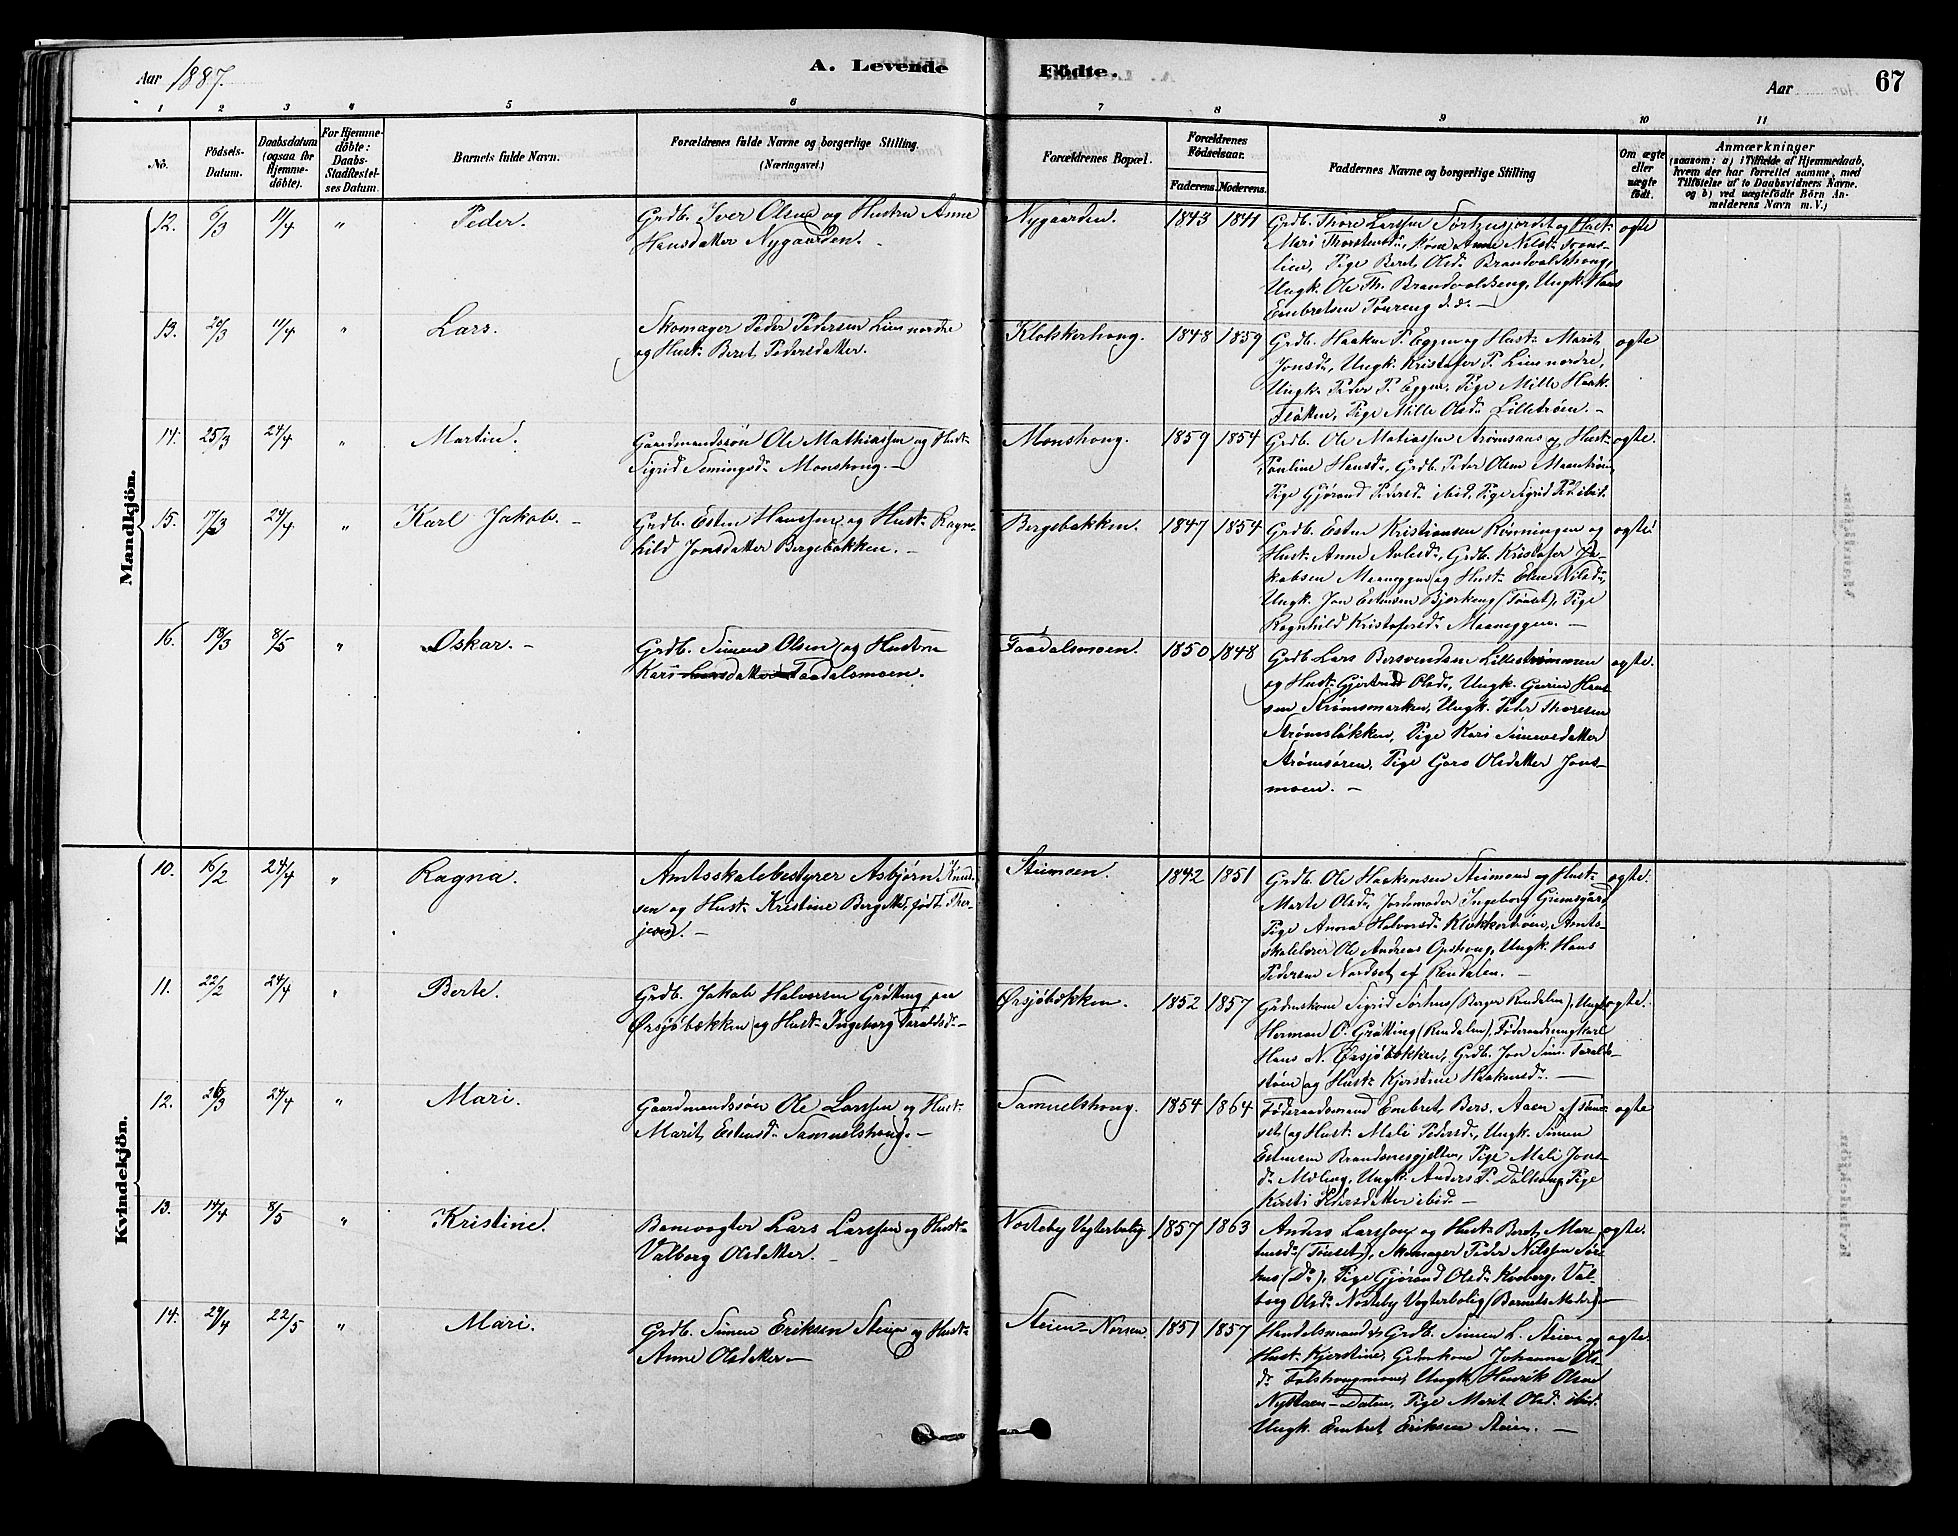 Aar 1887.
A. Levende
Födte.
Aar
67
1 2 3 4 5 6 7 8 9 10 11
No.
Födsels-
Datum.
Daabsdatum
(ogsaa for
Hjemme-
döbte).
For Hjemme-
döbte:
Daabs-
Stadfæstel-
ses Datum.
Barnets fulde Navn.
Forældrenes fulde Navne og borgerlige Stilling.
(Næringsvei.)
Forældrenes Bopæl.
Forældrenes
Födselsaar.
Faderens. Moderens.
Faddernes Navne og borgerlige Stilling
Om ægte
eller
uægte
födt.
Anmærkninger
(saasom: a) i Tilfælde af Hjemmedaab,
hvem der har forrettet samme, med
Tilföielse af to Daabsvidners Navne.
og b) ved uægtefödte Börn An-
melderens Navn m. V.)
Mandkjön.
12. 6/3 11/4 " Peder.
Grdb. Iver Olsen og Hustru Anne
Hansdatter Nygaarden. -
Nygaarden. 1843 1841
Grdb. Thore Larssen og Hust:
Mari Thorstensd:, Anne Nilsd:
lien, Pige Beret Olsd: Brandvoldshong,
Ungk. Ole Th. Brandvoldseng, Ungk. Hans
Embretsen
ægte
13. 20/3 11/4 " Lars.
Skomager Peder Pedersen Lien nordre
og Hust: Beret Pedersdatter.
Klokkerhong. 1848 1859
Grdb. Haaken P. Eggen og Hust: Marit
Jonsd:, Ungk. Kristofer P. Lien nordre,
Ungk. Peder P. Eggen, Pige Mille Haak.
Fløtten, Pige Mille Olsd: Lilletrøen. -
ægte
14. 25/3 24/4 " Martin.
Gaardmandssøn Ole Mathiassen og Hust:
Sigrid Semingsd: Monshong. -
Monshong. 1859 1854
Grdb. Ole Matiassen og Hust:
Pauline Hansd:, Grdb. Peder Olsen
Pige Gjørand Pedersd: ibid, Pige Sigrid Pd: ibid.
ægte.
15. 17/3 24/4 " Karl Jakob. -
Grdb. Esten Hanssen og Hust: Ragn-
hild Jonsdatter Bergebakken. -
Bergebakken. 1847 1854
Grdb. Esten Kristiansen Rønningen og
Hust: Anne, Grdb. Kristofer Ja-
kobsen Maaneggen og Hust: Elen Nilsd:,
Ungk. Jon Estensen Bjørkeng (Tønset), Pige
Ragnhild Kristofersd: Maaneggen. -
ægte
16. 18/3 8/5 " Oskar. -
Grdb. Simen Olsen og Hustru
Kari Larsdatter Faadalsmoen.
Faadalsmoen. 1850 1848
Grdb Lars Bersvendsen Lillestrømmen
og Hust: Gjertrud Olsd:, Ungk. Han-
sen Strømsmarken, Ungk. Peder Thoresen
Strømsløkken, Pige Kari Simensdatter
Strømsøren, Pige Goro Olsdatter Jons-
moen. -
ægte.
Kvindekjön.
10. 16/2 24/4 " Ragna.
Amtsskolebestyrer Asbjørn Knud-
sen og Hust: Kristine født Ther-
jesen). -
Steimoen. 1842 1851
Grdb. Ole Haakensen Steimoen og Hust:
Marte Olsd:, Jordemoder Ingeborg Grimsgård,
Pige Anna Halvorsd: Klokkertrøen, Amts-
skolelærer Ole Andreas Opshong, Ungk. Hans
Pedersen Nordset af Rendalen. -
ægte.
11. 22/2 24/4 " Berte.
Grdb. Jakob Halvorsen Grøtting paa
Ørsjøbækken og Hust: Ingeborg Taraldsd: -
Ørsjøbækken. 1852 1857
Grdmskone Sigrid Sørhus (Berger Rendalen), Ungk.
Herman O. Grøtting (Rendalen), Føderaadsungkarl
Hans N. Ørsjøbækken, Grdb. Jon Sim. Taralds-
støen og Hust: Kjerstine Haakensd: -
ægte.
12. 26/3 24/4 " Mari.
Gaardmandssøn Ole Larssen og Hust:
Marit Estensd: Samuelshong. -
Samuelshong. 1854 1864
Føderaadsmand Embret Bers. Aaen af Tøn-
set og Hust: Mali Pedersd:, Ungk. Simen
Estensen Brandsnesgjelten, Pige Mali Jons-
d: Moling, Ungk. Anders P. Dølhong, Pige
Kirsti Pedersdatter ibid. -
ægte
13. 14/4 8/5 " Kristine.
Banevogter Lars Larssen og Hust:
Valborg Olsdatter. -
Nosteby Vogterbolig 1857 1863
Anders Larssen og Hust: Beret Mor-
tensd: (Tønset), Skomager Peder Nilssen Sør-
hus (Do), Pige Gjørand Olsd: Koberg, Val-
borg Olsd: Nosteby Vogterbolig (Barnets Moder). -
ægte.
14. 24/4 22/5 " Mari.
Grdb. Simen Eriksen Steien og Hust:
Anne Olsdatter. -
Steien - Norsen 1851 1857
Handelsmand & Grdb. Simen L. Steien og
Hust: Kjerstine, Grdmskone Johanna Ols-
d: Falshongmoen, Ungk. Henrik Olsen
Nyttaen - Dalen, Pige Marit Olsd: ibid.
Ungk. Embret Eriksen Steien. -
ægte.